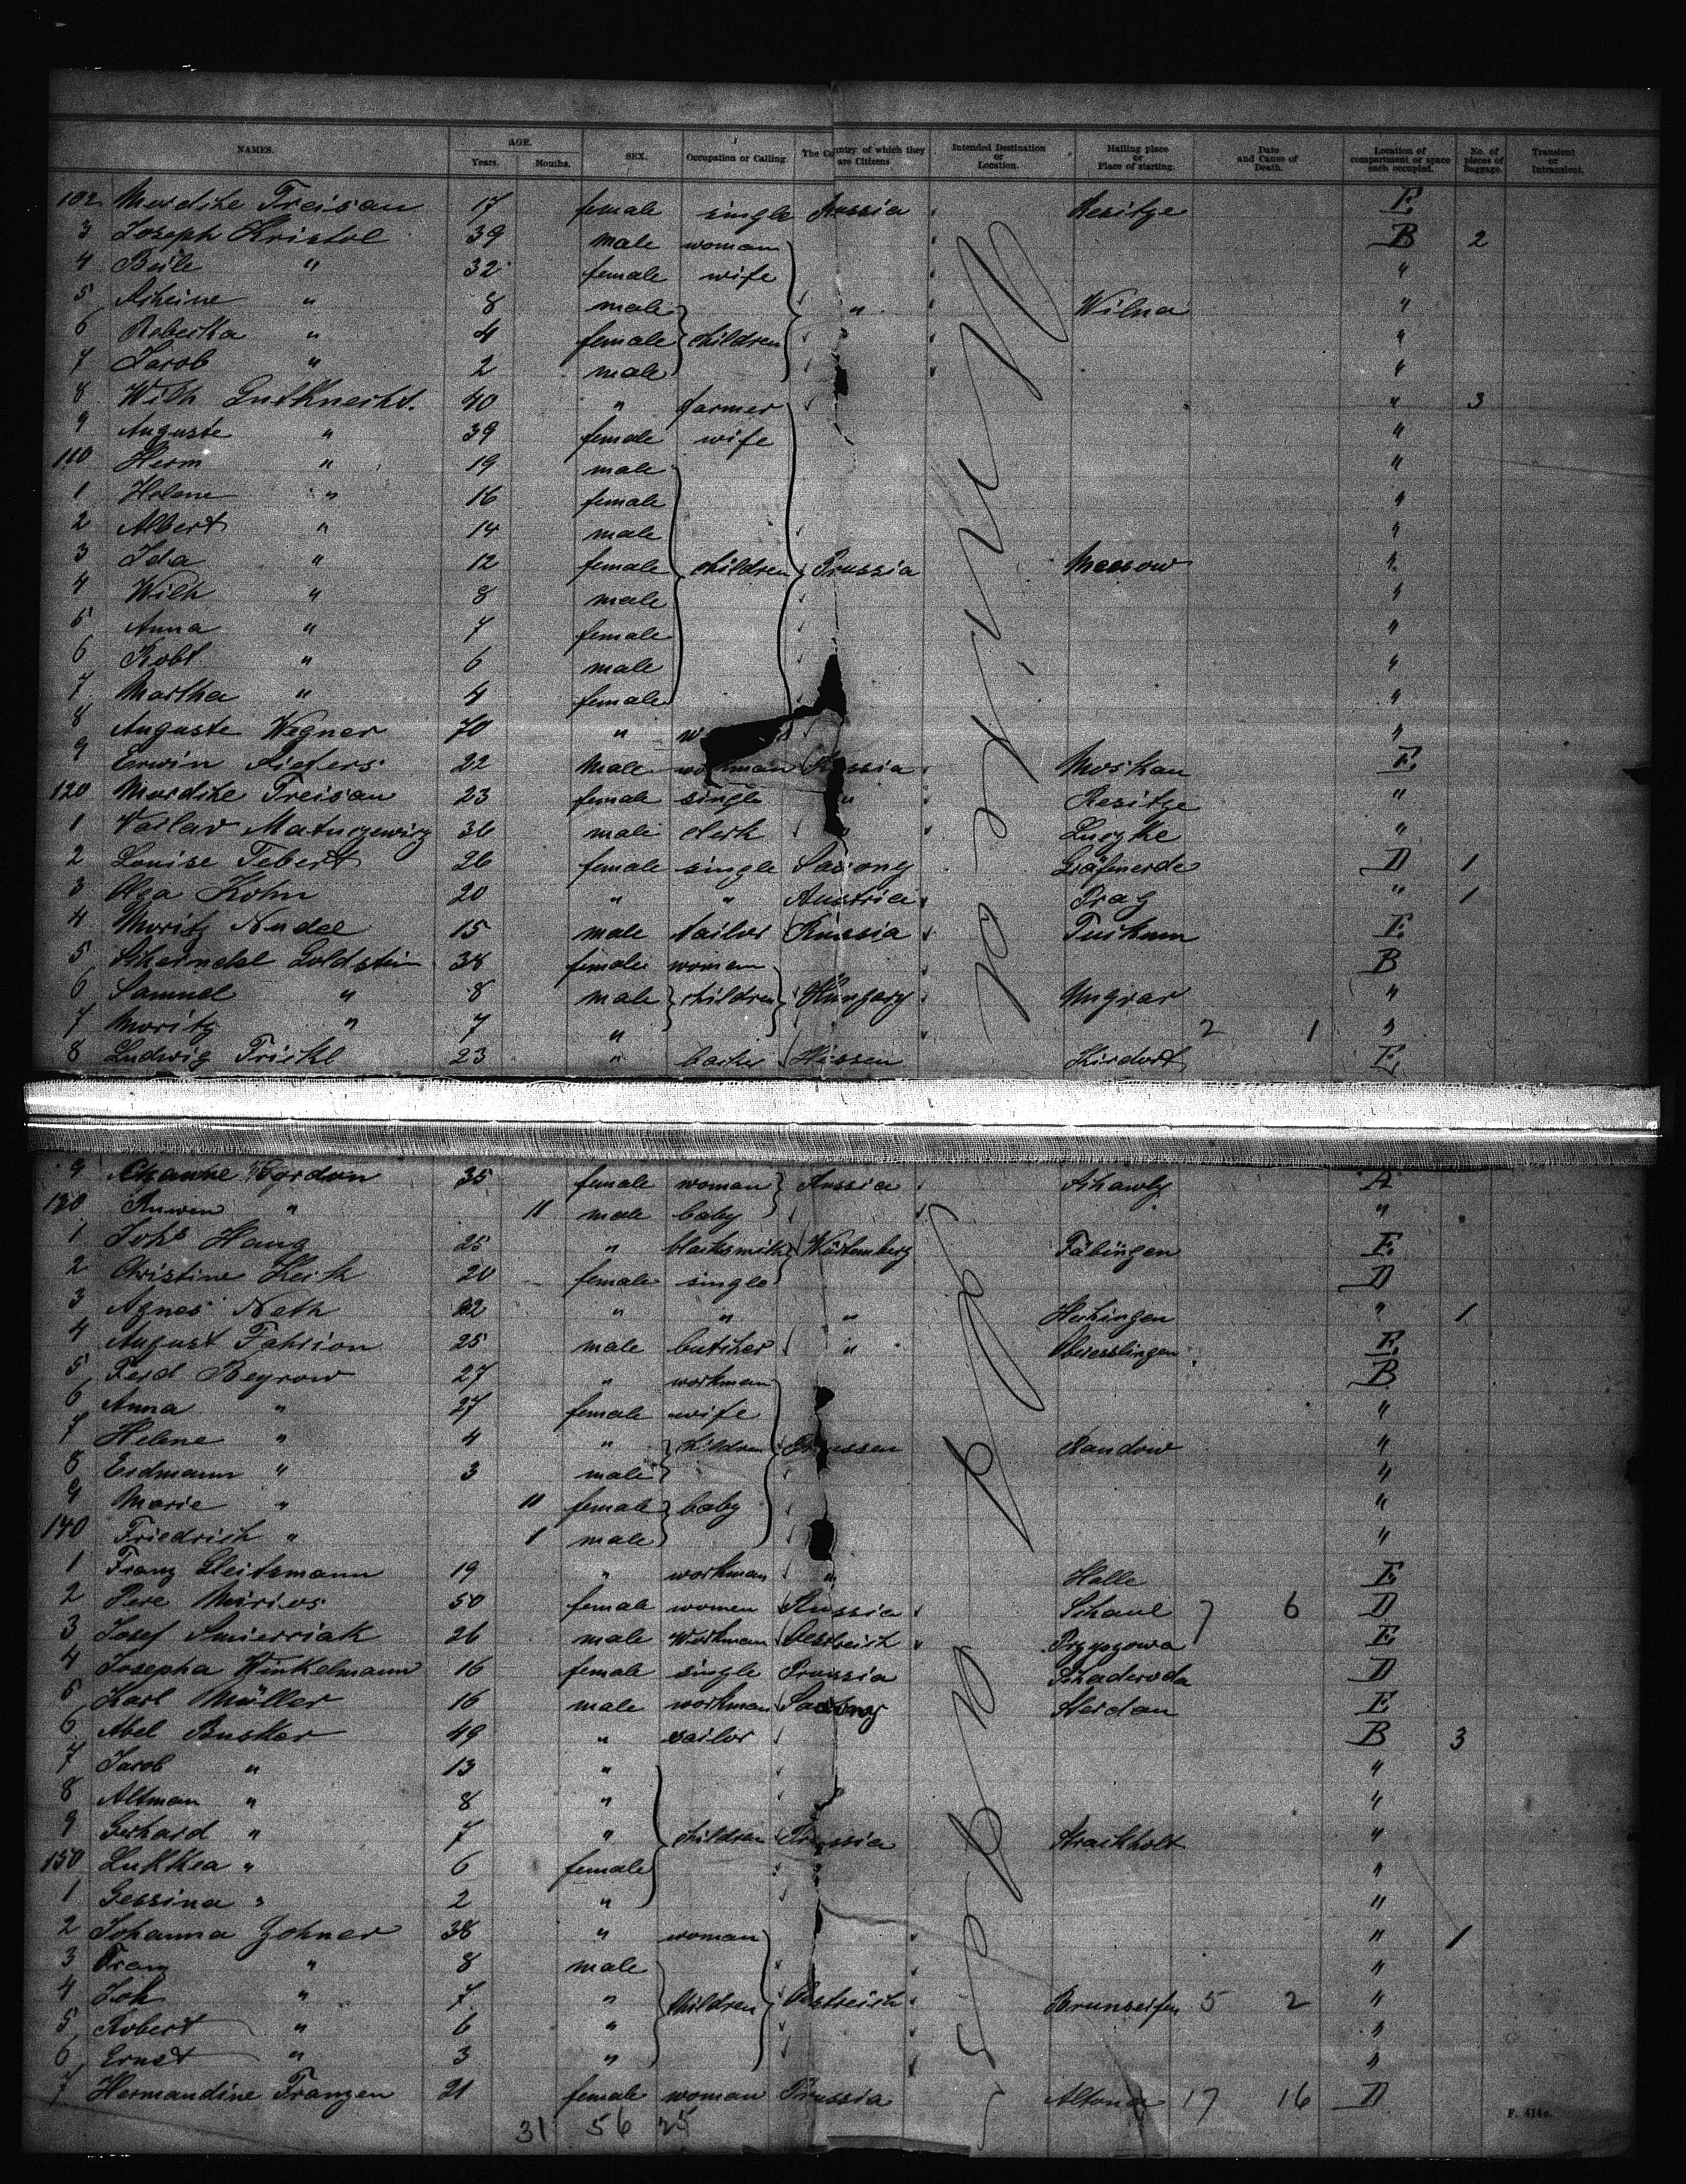 NAMES. AGE. Years. Months. SEX. Occupation or Calling The Country of which they are Citizens Intended Destination or Location. Hailing place or Place of starting. Date and Cause of Death. Location of compartment or space each occupied. No. of pieces of Baggage. Transient or Intransient.
102 Mordche Treisan 17 female single Russia Resitge E
3 Joseph Kristol 39 male woman B 2
4 Beile " 32 female wife "
5 " 8 male " Wilna "
6 " 4 female children "
7 Jacob " 2 male "
8 Wilh Gutknecht. 40 " farmer " 3
9 Auguste " 39 female wife "
110 Herm " 19 male "
1 Helene " 16 female "
2 Albert " 14 male "
3 Ida " 12 female children Prussia Massow "
4 Wilh " 8 male "
5 Anna " 7 female "
6 Robt " 6 male "
7 Martha " 4 female "
8 Auguste Wegner 70 " "
9 Erwin 22 Male workman Russia Moskau E
120 Mordche Treisan 23 female single " Resitge "
1 Vaclav 36 male clerk " "
2 Louise Tebert 26 female single Saxony D 1
3 Olga Kohn 20 " " Austria Prag " 1
4 Moritz Nudel 15 male tailor Russia Tuckum E
5 Goldstein 38 female woman B
6 Samuel " 8 male children Hungary Ungvar "
7 Moritz " 7 " 2 1 "
8 Ludwig Trickl 23 " Hessen Kirdorf E
9 Channe Gordon 35 female woman Russia A
130 Ruwen " 11 male baby "
1 Johs Haug 25 " blacksmith Würtemberg Tübingen E
2 Christine Keck 20 female single D
3 Agnes Neth 22 " " " Hechingen " 1
4 August Fahrion 25 male butcher " Oberesslingen E
5 Ferd Beyrow 27 " workman B
6 Anna " 27 female wife "
7 Helene " 4 " children Preussen Randow "
8 Erdmann " 3 male "
9 Marie " 11 female baby "
140 Friedrich " 1 male "
1 Franz Gleitsmann 19 " workman " Halle E
2 Pere 50 female women Russia Schaul 7 6 D
3 Josef 26 male Workman Oestreich E
4 Josepha Winkelmann 16 female single Prussia Schaderoda D
5 Karl Müller 16 male workman Saxony E
6 Abel Busker 49 " sailor B 3
7 Jacob " 13 " "
8 Altman " 8 " "
9 Gerhard " 7 " children Prussia Strackholt "
150 " 6 female "
1 Gessina " 2 " "
2 Johanna Gohner 38 " woman " 1
3 Franz " 8 male "
4 Joh " 7 " children Oestreich Brunseifen 5 2 "
5 Robert " 6 " "
6 Ernst " 3 " "
7 Hermandine Franzen 21 female woman Prussia Altona 17 16 D
31 56 25
F. 414a.